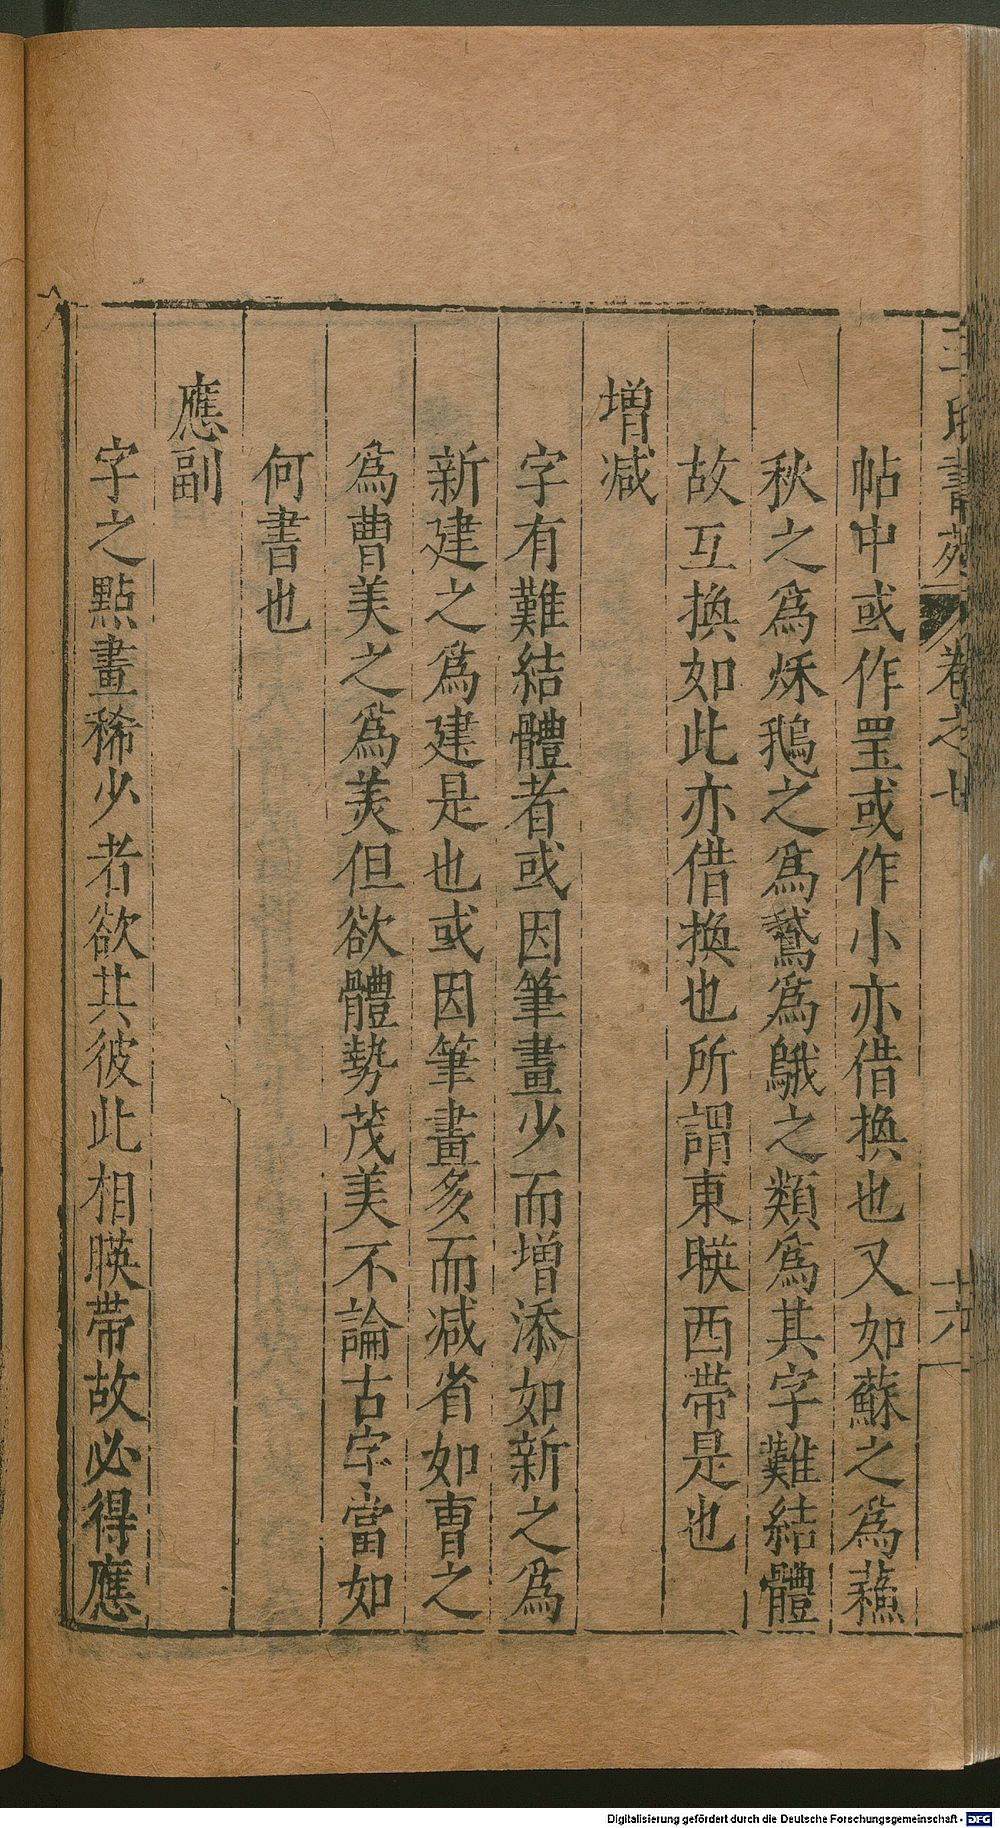 王氏書苑 卷之七 十六
帖中或作𤣥或作小亦借換也又如蘇之爲蘓
秋之爲秌鵝之爲鵞爲䳘之類爲其字難結體
故互換如此亦借換也所謂東暎西帶是也
增减
字有難結體者或因筆畫少而增添如新之爲
新建之爲建是也或因筆畫多而减省如曹之
爲曺美之爲羙但欲體勢茂美不論古字當如
何書也
應副
字之點畫稀少者欲其彼此相暎帶故必得應
Digitalisierung gefördert durch die Deutsche Forschungsgemeinschaft - DFG